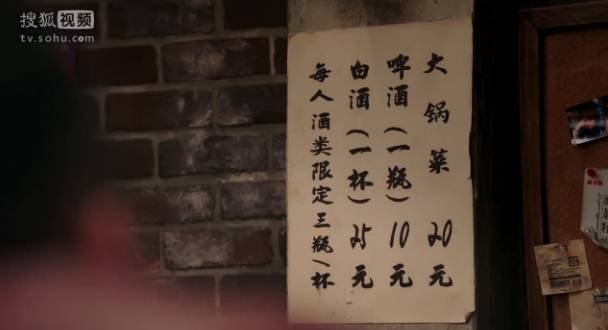 搜狐视频
tv.sohu.com
大锅菜 20元
啤酒（一瓶）10元
白酒（一杯）25元
每人酒类限定三瓶/杯